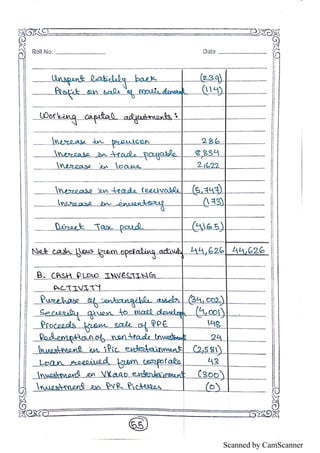 Roll No.
Date
Unspent liability back (239)
Profit on sale of (114)
Working capital adjustments :
Increase in provision 286
Increase in trade payable 8,834
Increase in loans 2,622
Increase in trade receivable (5,747)
Increase in inventory (173)
Direct Tax paid (4165)
Net cash flow from operating activity 44,626 44,626
B. CASH FLOW INVESTING
ACTIVITY
Purchase of intangible assets (34,002)
Security given to mall develop (4,001)
Proceeds from sale of PPE 148
Redemption of non trade Investment 24
Investment in iPic entertainment (2,581)
Loan received from corporate 43
Investment in Vkaao entertainment (300)
Investment in PVR Pictures (0)
55
Scanned by CamScanner